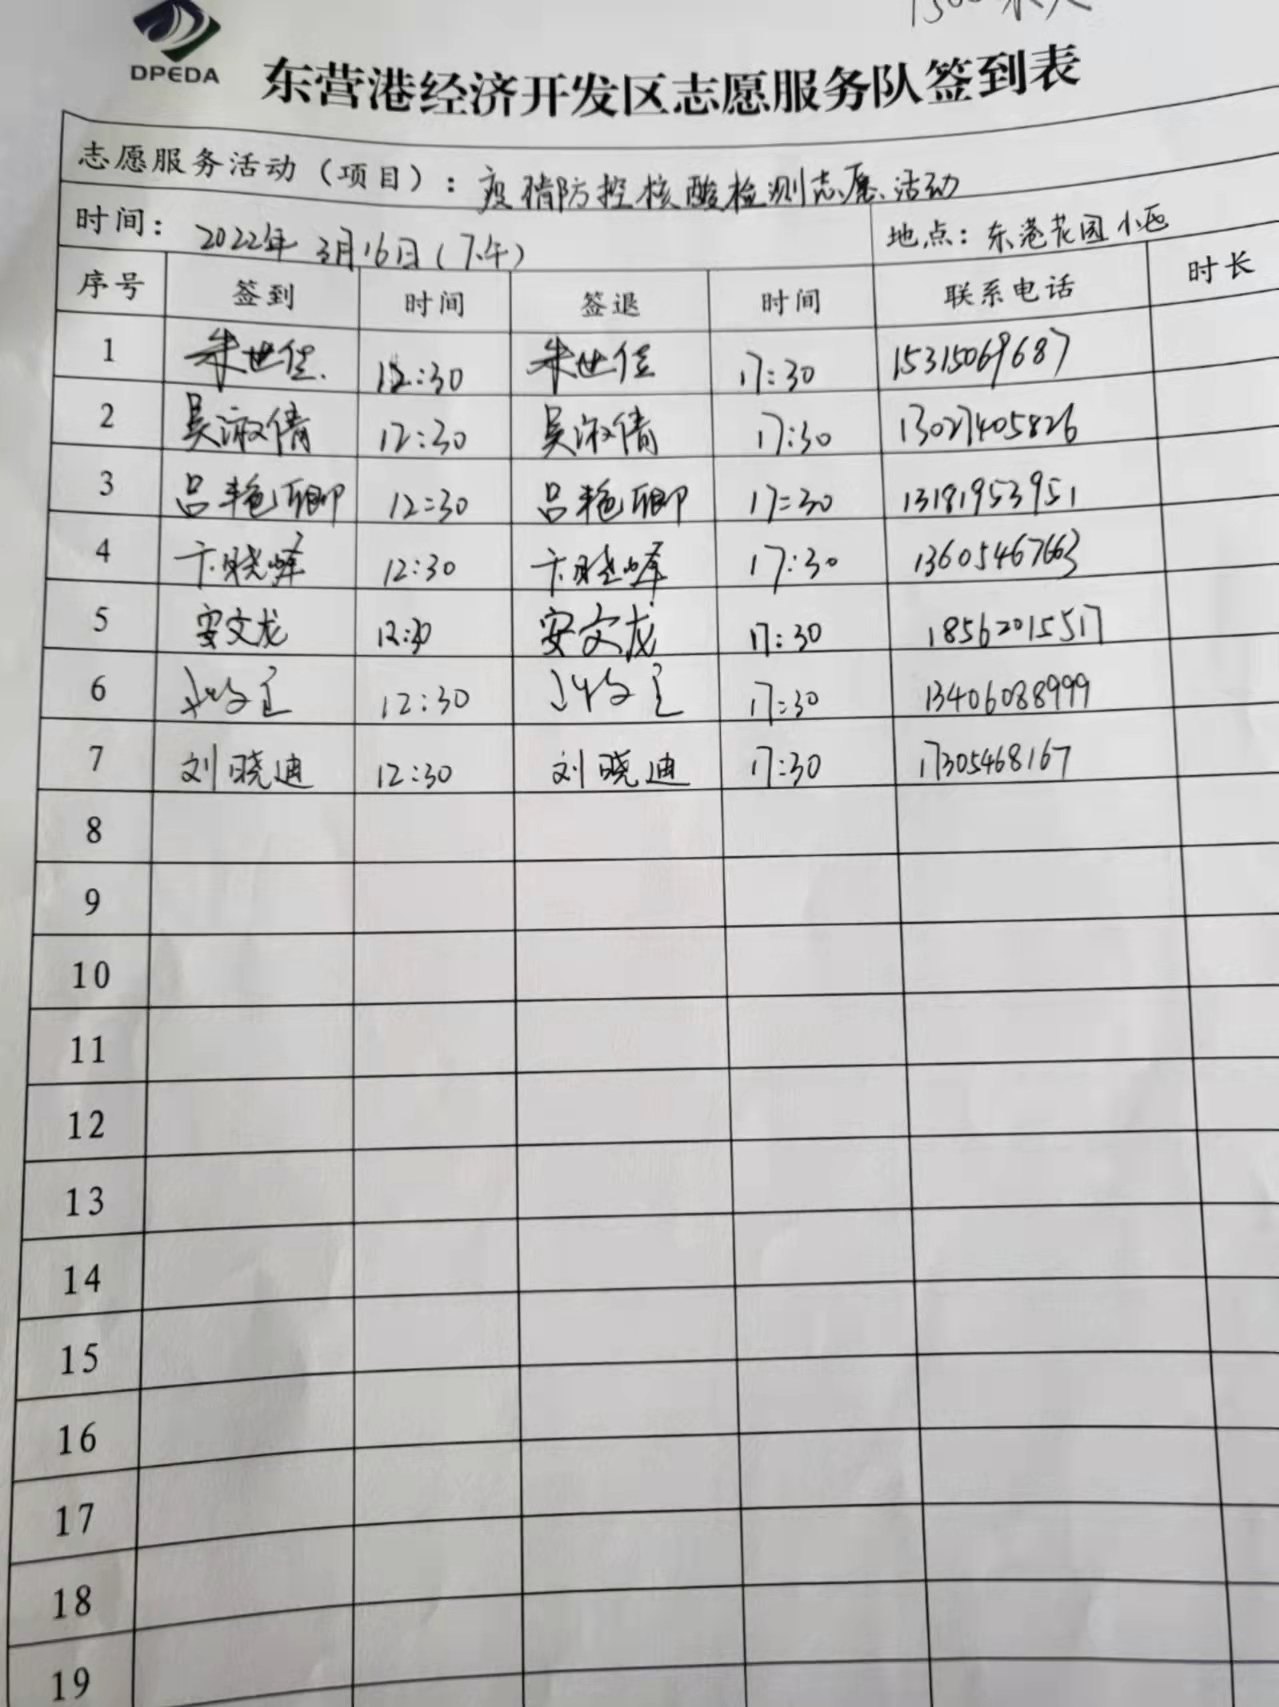 DPEDA
东营港经济开发区志愿服务队签到表
志愿服务活动（项目）：疫情防控核酸检测志愿活动
时间：2022年3月16日（下午） 地点：东港花园小区
序号 签到 时间 签退 时间 联系电话 时长
1 朱世佳 12:30 朱世佳 17:30 15315069687
2 吴淑倩 12:30 吴淑倩 17:30 13027405826
3 吕艳卿 12:30 吕艳卿 17:30 13181953951
4 卞晓峰 12:30 卞晓峰 17:30 13605467663
5 安文龙 12:30 安文龙 17:30 18562015517
6 12:30 17:30 13406088999
7 刘晓迪 12:30 刘晓迪 17:30 17305468167
8
9
10
11
12
13
14
15
16
17
18
19